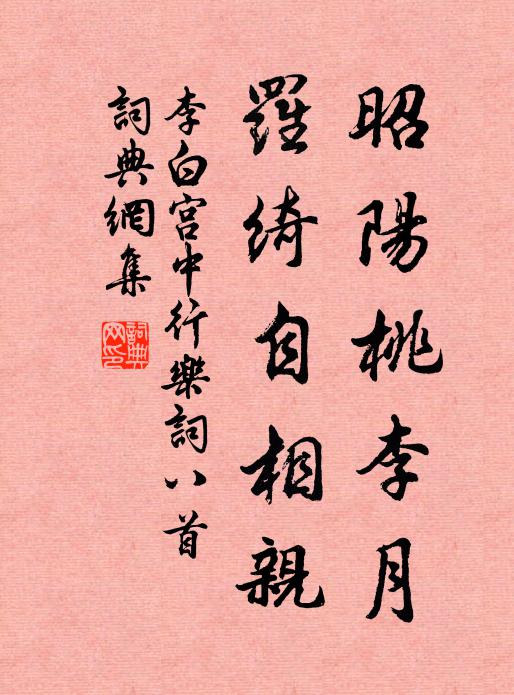 昭陽桃李月
羅綺自相親
李白宫中行樂詞八首
詞典網集
詞典
网印